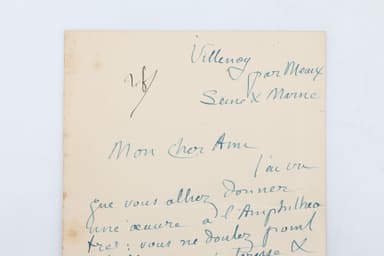 Villenoy
par Meaux
Seine & Marne
Mon cher Ami
J'ai vu
que vous alliez donner
une œuvre à l'Amphithea
tres: vous ne doutez point